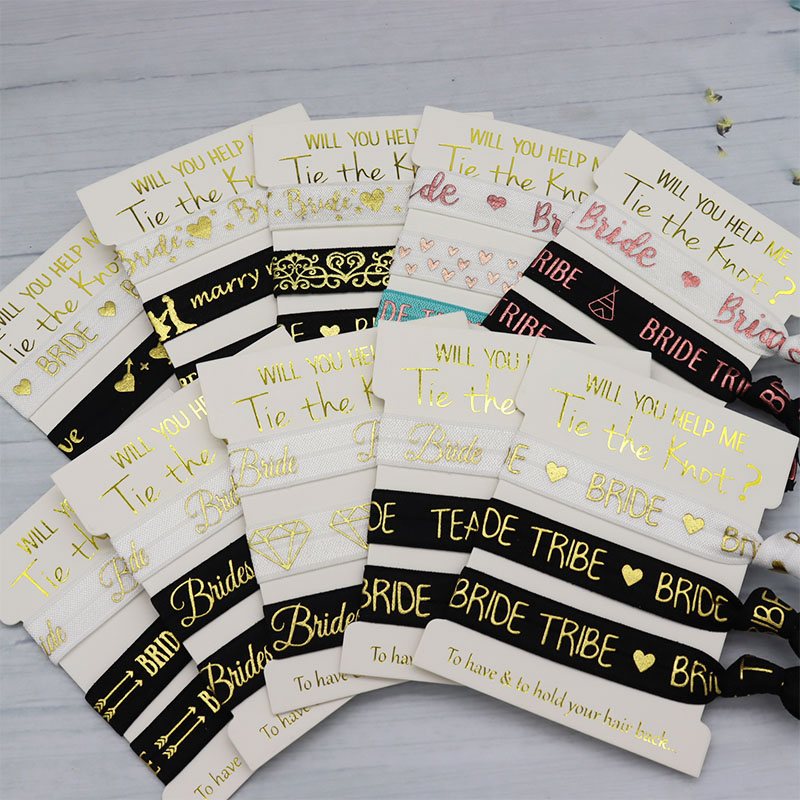 WILL YOU HELP ME
Tie the Knot
BRIDE
WILL YOU HELP
Tie the Kno
Bride Bri
marry
WILL YOU HELP
Tie the
Bride
WILL YOU HELP ME
Tie the K
ide Brid
DE TR
WILL YOU HELP ME
Tie the Knot?
Bride Bride
TRIBE BRIDE TRIB
TRIBE
WILL YOU
Tie the
ide
BRID
To have
WILL YOU HELP
Tie the
Bride
Brides
Brides
To have
WILL YOU HELP
Tie the K
Bride
Brides
To have &
WILL YOU HELP
Tie the
Bride
DE TEA
BRIDE
To have
WILL YOU HELP ME
Tie the Knot?
BRIDE BRI
DE TRIBE BRIDE TRIBE
BRIDE TRIBE BRID T
To have & to hold your hair back..